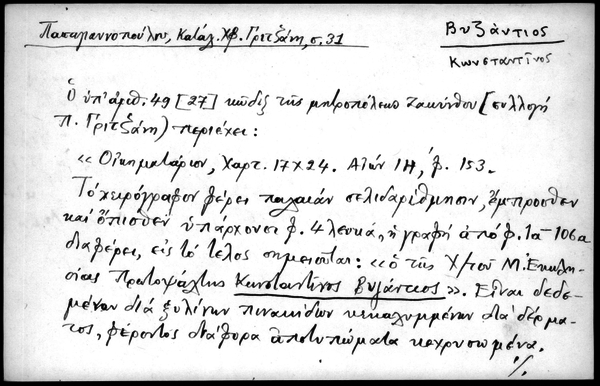 Παπαγιαννοπούλου, Κατάλ. Χφ. Γριτζάνη, σ. 31
Βυζάντιος
Κωνσταντῖνος
Ὁ ὑπ' ἀριθ. 49 [27] κῶδιξ τῆς μητροπόλεως Ζακύνθου [συλλογή
Π. Γριτζάνη) περιέχει:
«Οἰκηματάριον, Χαρτ. 17Χ24. Αἰών ΙΗ, φ. 153.
Τὸ χειρόγραφον φέρει παλαιὰν σελιδαρίθμησιν, ἔμπροσθεν
καὶ ὄπισθεν ὑπάρχουσι φ. 4 λευκά, ἡ γραφή ἀπό φ. 1α-106α
διαφέρει, εἰς τὸ τέλος σημειοῦται: «ὁ τῆς Χ/τοῦ Μ. Ἐκκλη-
σίας Πρωτοψάλτης Κωνσταντῖνος Βυζάντιος». Εἶναι δεδε-
μένον διά ξυλίνων πινακίδων κεκαλυμμένων διά δέρμα-
τος, φέροντος διάφορα ἀποτυπώματα κεχρυσωμένα.
·/.